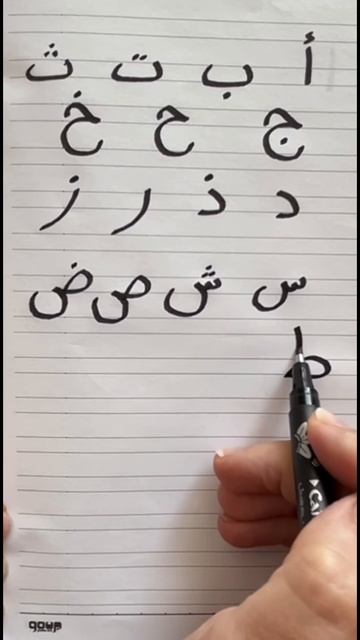 أ ب ت ث
ج ح خ
د ذ ر ز
س ش ص ض
ط